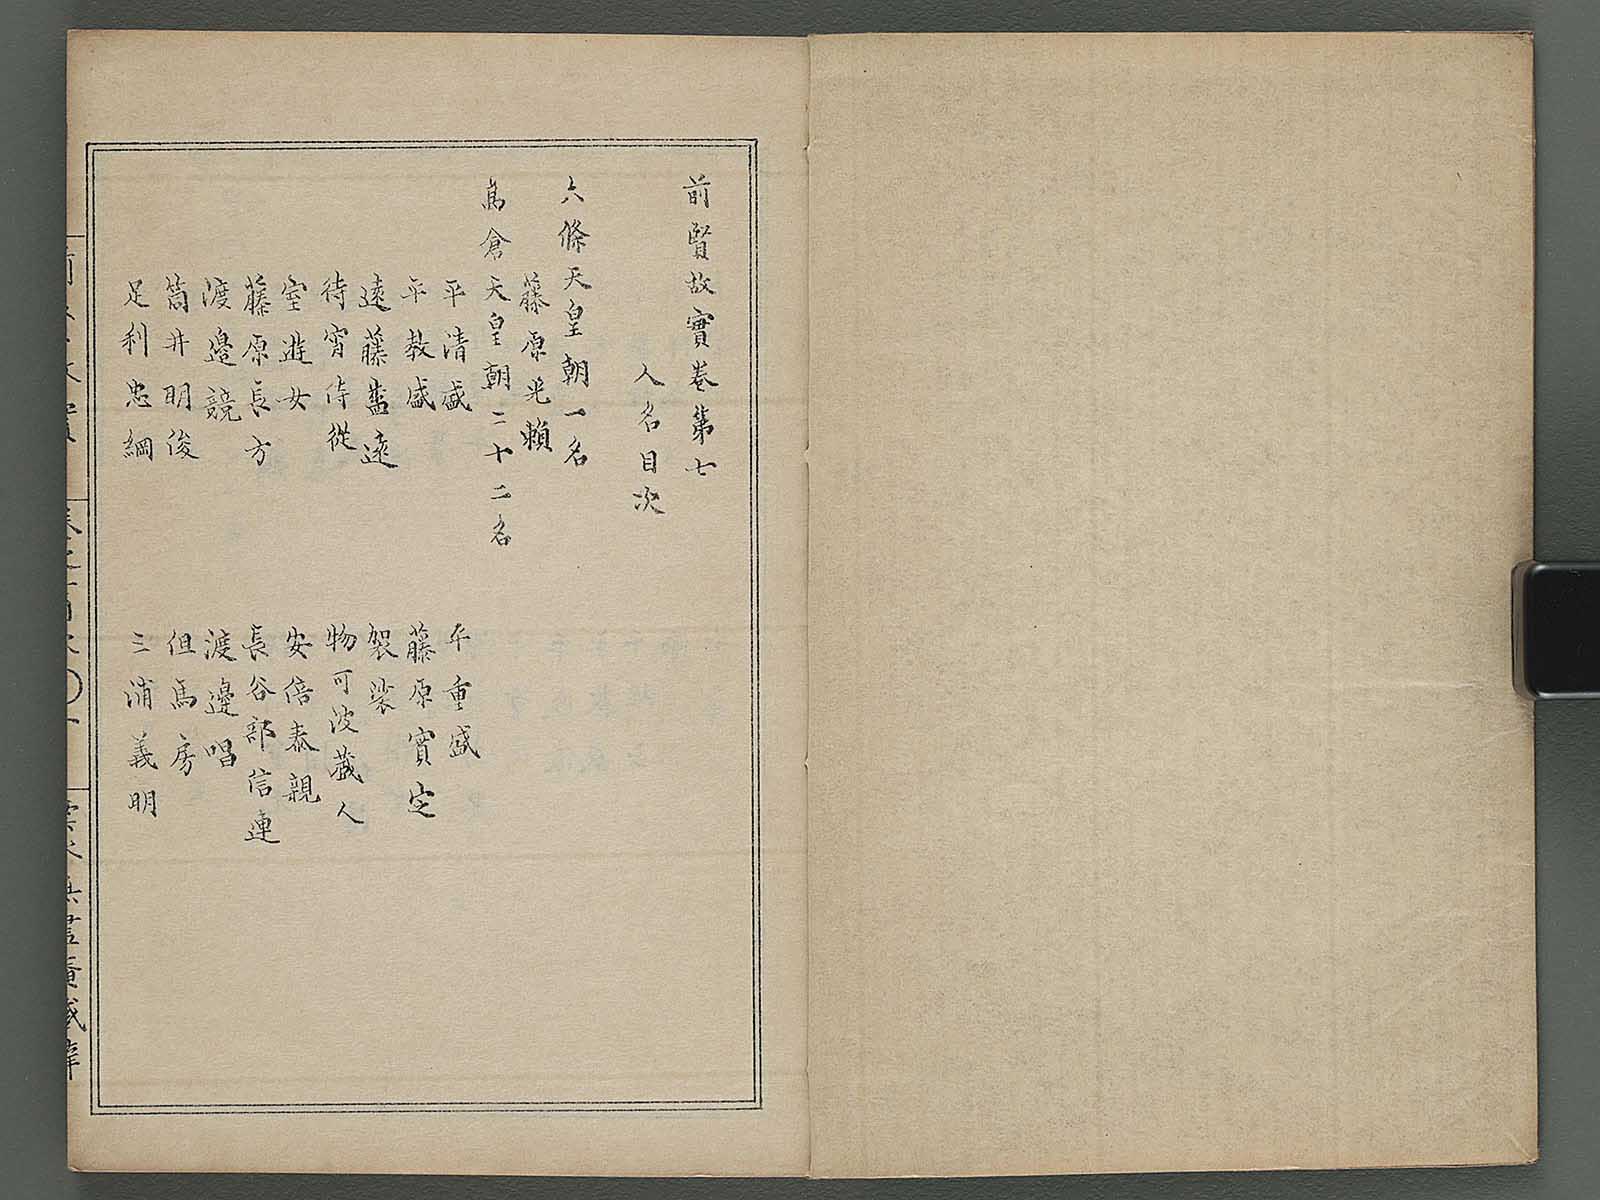 前賢故實卷第七
人名目次
六條天皇朝一名
藤原光頼
高倉天皇朝二十二名
平清盛
平重盛
平教盛
藤原實定
遠藤盛遠
袈裟
待宵侍從
物可波蔵人
室遊女
安倍泰親
藤原長方
長谷部信連
渡邉競
渡邉唱
筒井明俊
但馬房
足利忠綱
三浦義明